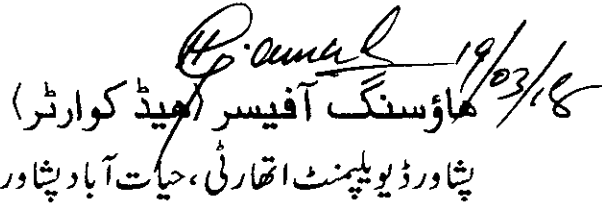 19/03/18
ھاؤسنگ آفیسر (ھیڈ کوارٹر)
پشاور ڈیویلپمنٹ اتھارٹی، حیات آباد پشاور